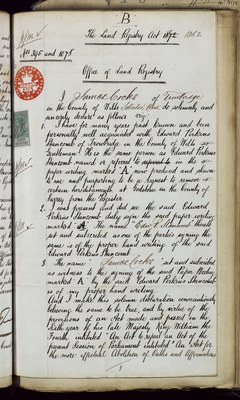 B
The Land Registry Act 1862 1862.
Nos 395 and 1078
Office of Land Registry
I James Cooke of Trowbridge
in the County of Wilts do solemnly and
sincerely declare as follows viz:
1. I have for many years past known and been
personally well acquainted with Edward Perkins
Stancomb of Trowbridge in the County of Wilts
Gentleman. He is the same person as Edward Perkins
Stancomb named or referred to in the
paper writing marked "A" now produced and shewn
to me and purporting to be a request to remove
certain hereditaments at Godstone in the County of
Surrey from the Register
2. I was present and did see the said Edward
Perkins Stancomb duly sign the said paper writing
marked "A". The name
set and subscribed as one of the parties signing the
same is of the proper hand writing of the said
Edward Perkins Stancomb.
3. The name "James Cooke" set and subscribed
as witness to the signing of the said Paper Writing
marked "A" by the said Edward Perkins Stancomb
is of my proper hand writing
And I make this solemn declaration conscientiously
believing the same to be true, and by virtue of the
provisions of an Act made and passed in the
Sixth year of his late Majesty King William the
Fourth intituled "An Act to repeal an Act of the
present Session of Parliament intituled "An Act for
the more effectual Abolition of Oaths and Affirmations